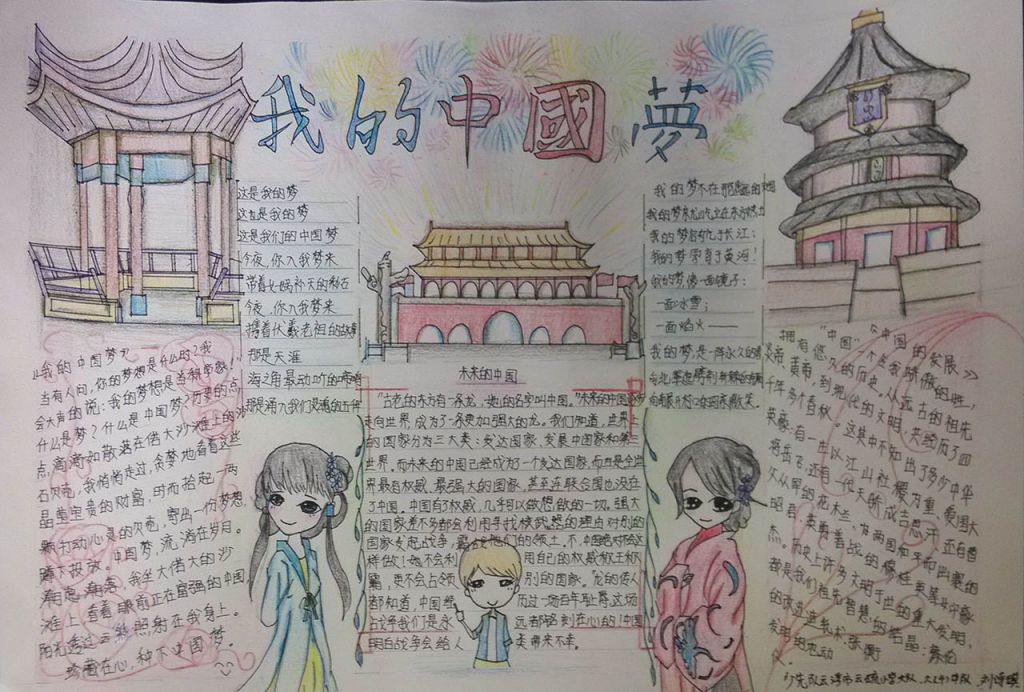 我的中國夢
这是我的梦
这也是我的梦
这是我们的中国梦
今夜，你入我梦来
带着女娲补天的彩石
今夜，你入我梦来
携着伏羲老祖的故事
那是天涯
海之角最动听的
那是涌入我们灵魂的五千
我的梦不在那
我的梦
我的梦
我的梦
我的梦像一面镜子：
一面冰雪；
一面焰火——
我的梦，是一阵永久的
《我的中国梦》
当有人问，你的梦想是什么时？我
会大声的说：我的梦想是首和
什么是梦？什么是中国梦？历史的点
点滴滴如散落在偌大沙滩上的
石贝壳，我悄悄走过，贪婪地看着这些
晶莹宝贵的财富，时而拾起一两
颗打动心灵的贝壳，寄出一份梦想，
中国梦，流淌在岁月。
我坐大偌大的沙
滩上，看着眼前正在富强的中国
阳光透过云 照射在我身上。
珍藏在心，种下中国梦。
未来的中国
“古老的东方有一条龙，她的名字叫中国。”未来的中国
走向世界，成为了一条更加强大的龙。我们知道，世界上
的国家分为三大类：发达国家，发展中国家和第三
世界。而未来的中国已经成为了一个发达国家，而且是全世
界最有权威，最强大的国家，甚至连联合国也没在
了中国。中国有了权威，几乎可以做想做的一切。强大
的国家差不多都会利用寻找 的理由对别的
国家发起战争，霸占他们的领土。不，中国绝对不会这
样做！她不会利用自己的权威称王称
霸，更不会占领别的国家。龙的传人
都知道，中国经历过一场百年耻辱，这场
战争我们是永远都铭刻在心的！中国
明白战争会给人类带来不幸。
《中国的发展》
“中国”，一个多么骄傲的姓，
拥有悠久的历史。从远古的祖先
炎帝、黄帝，到现代的文明，共经历了四
千年多个春秋。这其中不知出了多少中华
英豪：有一生以江山社稷为重，爱国大
将岳飞；还有一代天骄成吉思汗；还有替
父从军的花木兰；有为两国和平和出塞的
昭君；
杰。历史上许多文明于世的重大发明，
都是我们祖先智慧的结晶：蔡伦
的改进造纸术，张衡
发明的地动
仪。